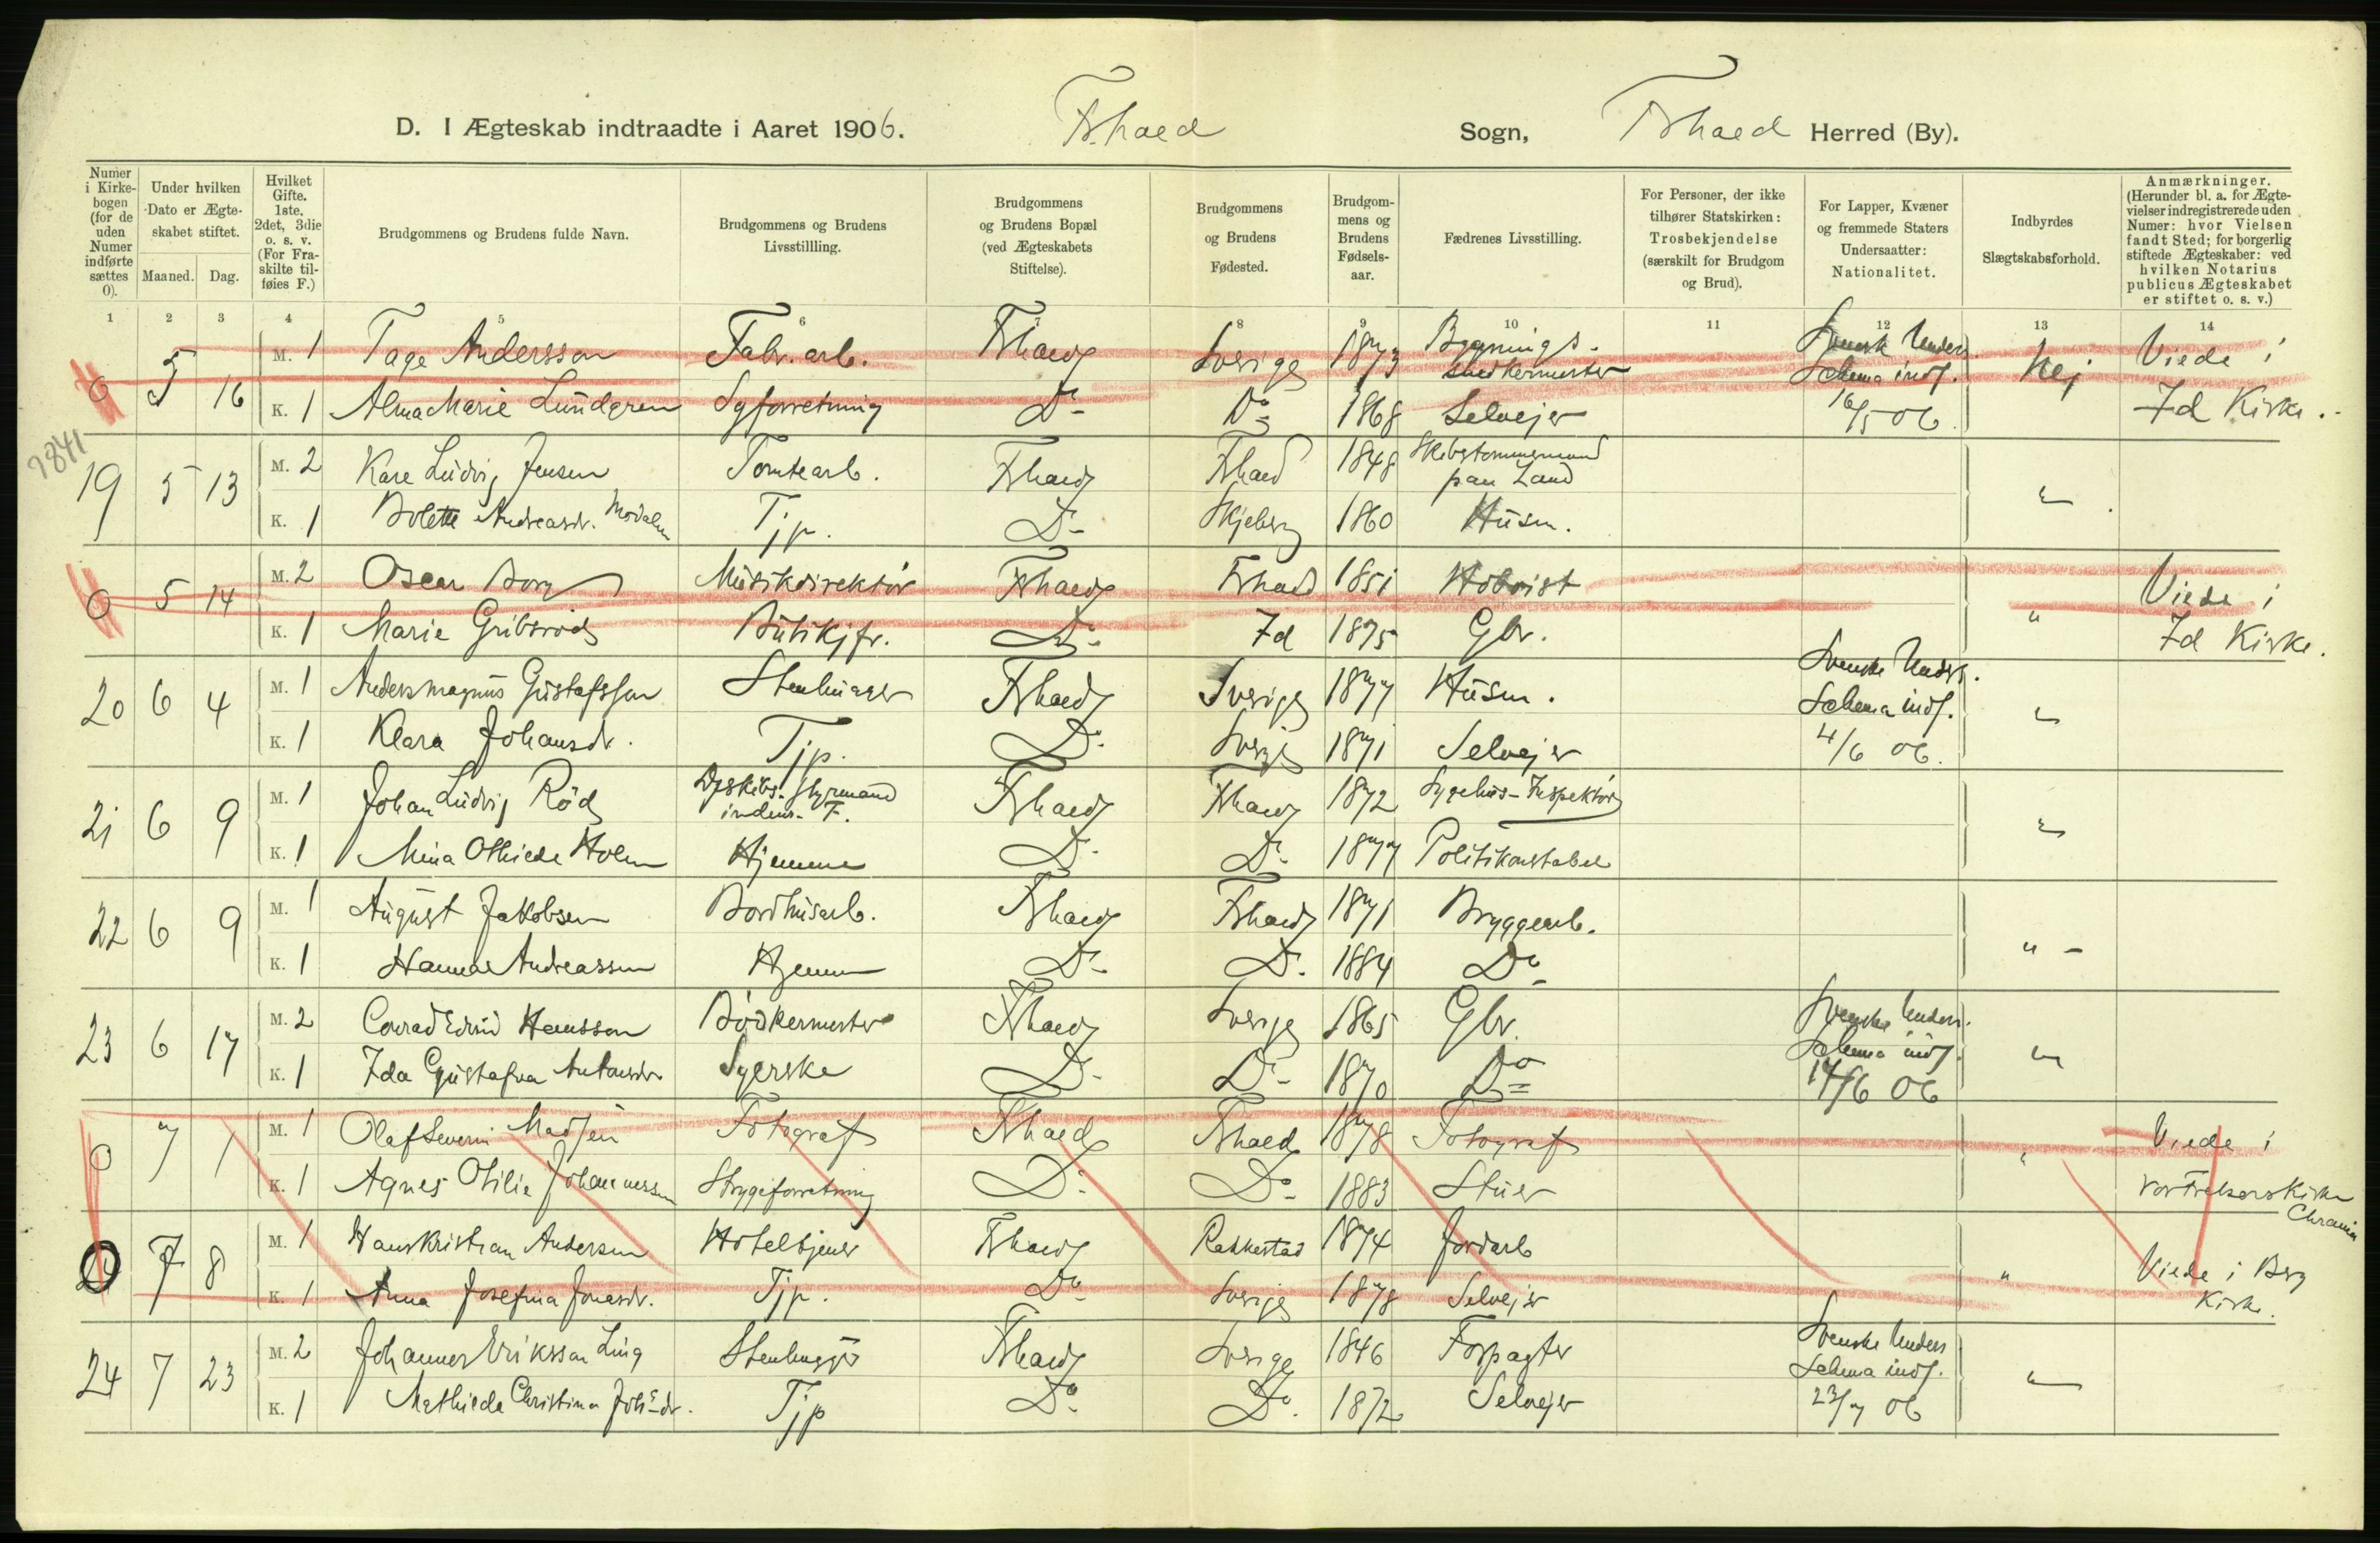 D. I Ægteskab indtraadte i Aaret 1906. Frhald Sogn, Frhald Herred (By).
Numer i Kirkebogen (for de uden Numer indførte sættes 0). Under hvilken Dato er Ægteskabet stiftet. Maaned. Dag. Hvilket Gifte. 1ste, 2det, 3die o. s. v. (For Fraskilte tilføies F.) Brudgommens og Brudens fulde Navn. Brudgommens og Brudens Livsstillling. Brudgommens og Brudens Bopæl (ved Ægteskabets Stiftelse). Brudgommens og Brudens Fødested. Brudgommens og Brudens Fødselsaar. Fædrenes Livsstilling. For Personer, der ikke tilhører Statskirken: Trosbekjendelse (særskilt for Brudgom og Brud). For Lapper, Kvæner og fremmede Staters Undersaatter: Nationalitet. Indbyrdes Slægtskabsforhold. Anmærkninger. (Herunder bl. a. for Ægtevielser indregistrerede uden Numer: hvor Vielsen fandt Sted; for borgerlig stiftede Ægteskaber: ved hvilken Notarius publicus Ægteskabet er stiftet o. s. v.)
1 2 3 4 5 6 7 8 9 10 11 12 13 14
0 5 16 M. 1 Tage Andersson Fabr. arb. Frhald Sverige 1873 Bygnings- snedkermester Svensk Unders. Schema indf. 16/5 06 Nej Viede i Id Kirke.
K. 1 Alma Marie Lundgren Syforretning Do Do 1868 Selvejer
1841
19 5 13 M. 2 Karl Ludvig Jensen Tomtearb. Frhald Frhald 1848 Skibstømmermand paa Land "
K. 1 Bolette Andreasdr. Tjp. Do Skjeberg 1860 Husm.
0 5 14 M. 2 Oscar Borg Musikdirektör Frhald Frhald 1851 Hoboist " Viede i Id Kirke.
K. 1 Marie Gribsröd Butikjfr. Do Id 1875 Gbr.
20 6 4 M. 1 Anders Magnus Gustafsson Stenhugger Frhald Sverige 1877 Husm. Svenske Unders. Schema indf. 4/6 06. "
K. 1 Klara Johansdr. Tjp. Do Sverige 1871 Selvejer
21 6 9 M. 1 Johan Ludvig Röd Dpskibs. Styrmand indenr. F. Frhald Frhald 1872 Sygehus-Inspektör "
K. 1 Mina Othilde Holm Hjemme Do Do 1877 Politikonstabel
22 6 9 M. 1 August Jakobsen Bordhusarb. Frhald Frhald 1871 Bryggearb. " -
K. 1 Hanna Andreassen Hjemme Do Do 1884 Do
23 6 17 M. 2 Conrad Edvin Hansson Bödkermester Frhald Sverige 1865 Gbr. Svenske Unders. Schema indf. 17/6 06 "
K. 1 Ida Gustafva Antonsdr. Syerske Do Do 1870 Do
0 7 1 M. 1 Olaf Severin Madsen Fotograf Frhald Frhald 1878 Fotograf " Viede i Vor Frelsers Kirke Chrania
K. 1 Agnes Otilie Johannessen Strygeforretning Do Do 1883 Stuer
0 7 8 M. 1 Hans Kristian Andersen Hoteltjener Frhald Rakkestad 1874 Jordarb " Viede i Berg Kirke.
K. 1 Anna Josefina Jonasdr. Tjp. Do Sverige 1878 Selvejer
24 7 23 M. 2 Johannes Eriksson Ling Stenhugger Frhald Sverige 1846 Forpagter Svenske Unders Schema indf. 23/7 06 "
K. 1 Mathilda Christina Tjp Do Do 1872 Selvejer